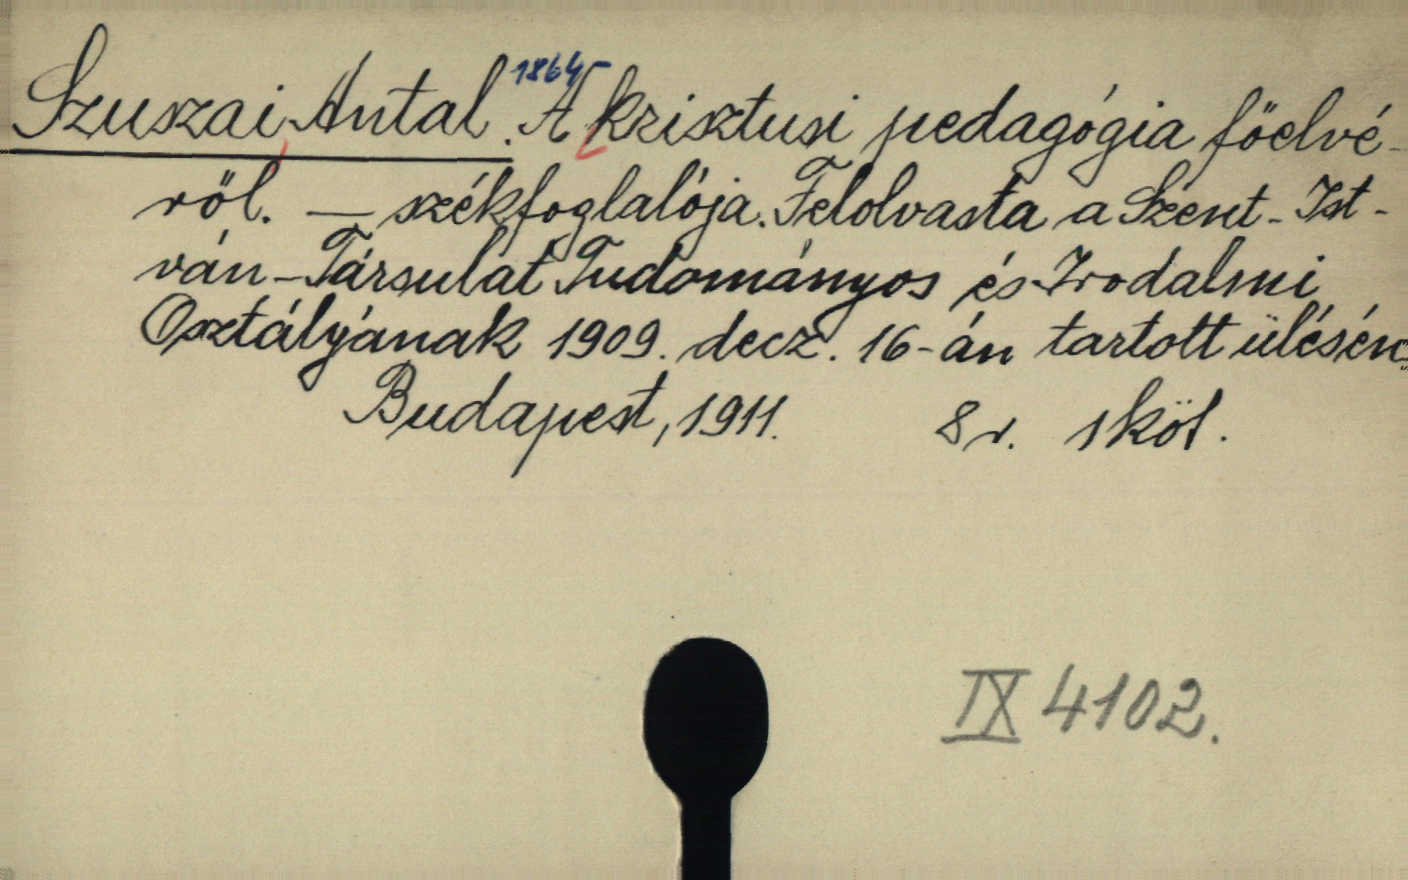 Szuszai, Antal. 1864- A krisztusi pedagógia főelvé-
ről. — székfoglalója. Felolvasta a Szent-Ist-
ván-Társulat Tudományos és Irodalmi
Osztályának 1909. decz. 16-án tartott ülésén.
Budapest, 1911. 8r. 1 köt.
IX 4102.